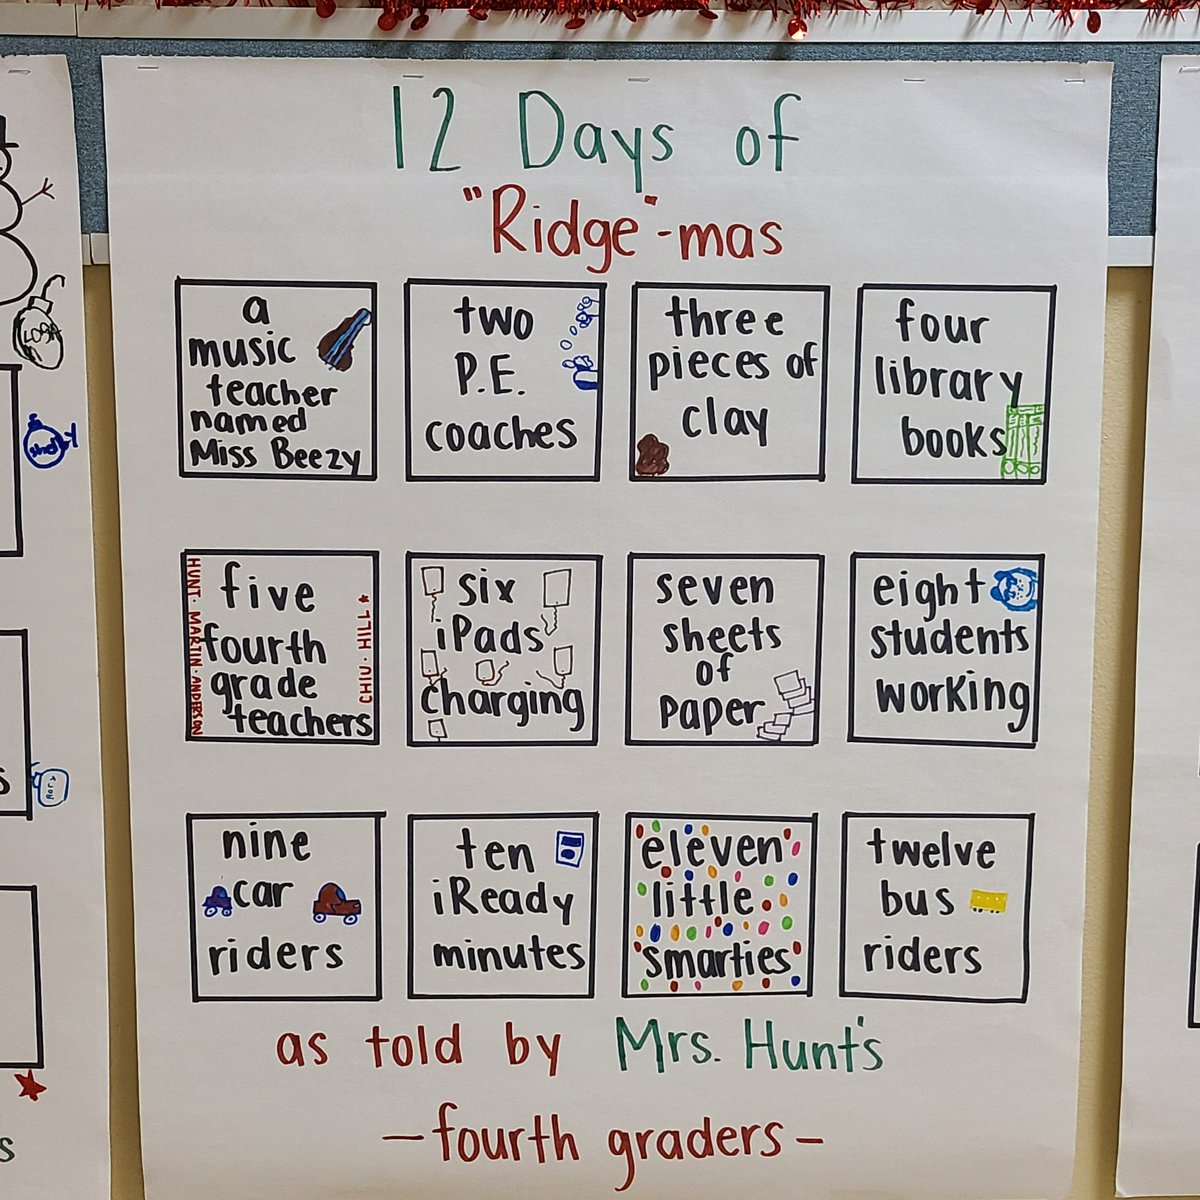 12 Days of
"Ridge"-mas
a
music
teacher
named
Miss Beezy
two
P.E.
coaches
three
pieces of
clay
four
library
books
five
fourth
grade
teachers
HUNT · MARTIN · ANDERSON
CHIU · HILL
six
iPads
charging
seven
sheets
of
paper
eight
students
working
nine
car
riders
ten
iReady
minutes
eleven
little
smarties
twelve
bus
riders
as told by Mrs. Hunt's
- fourth graders -